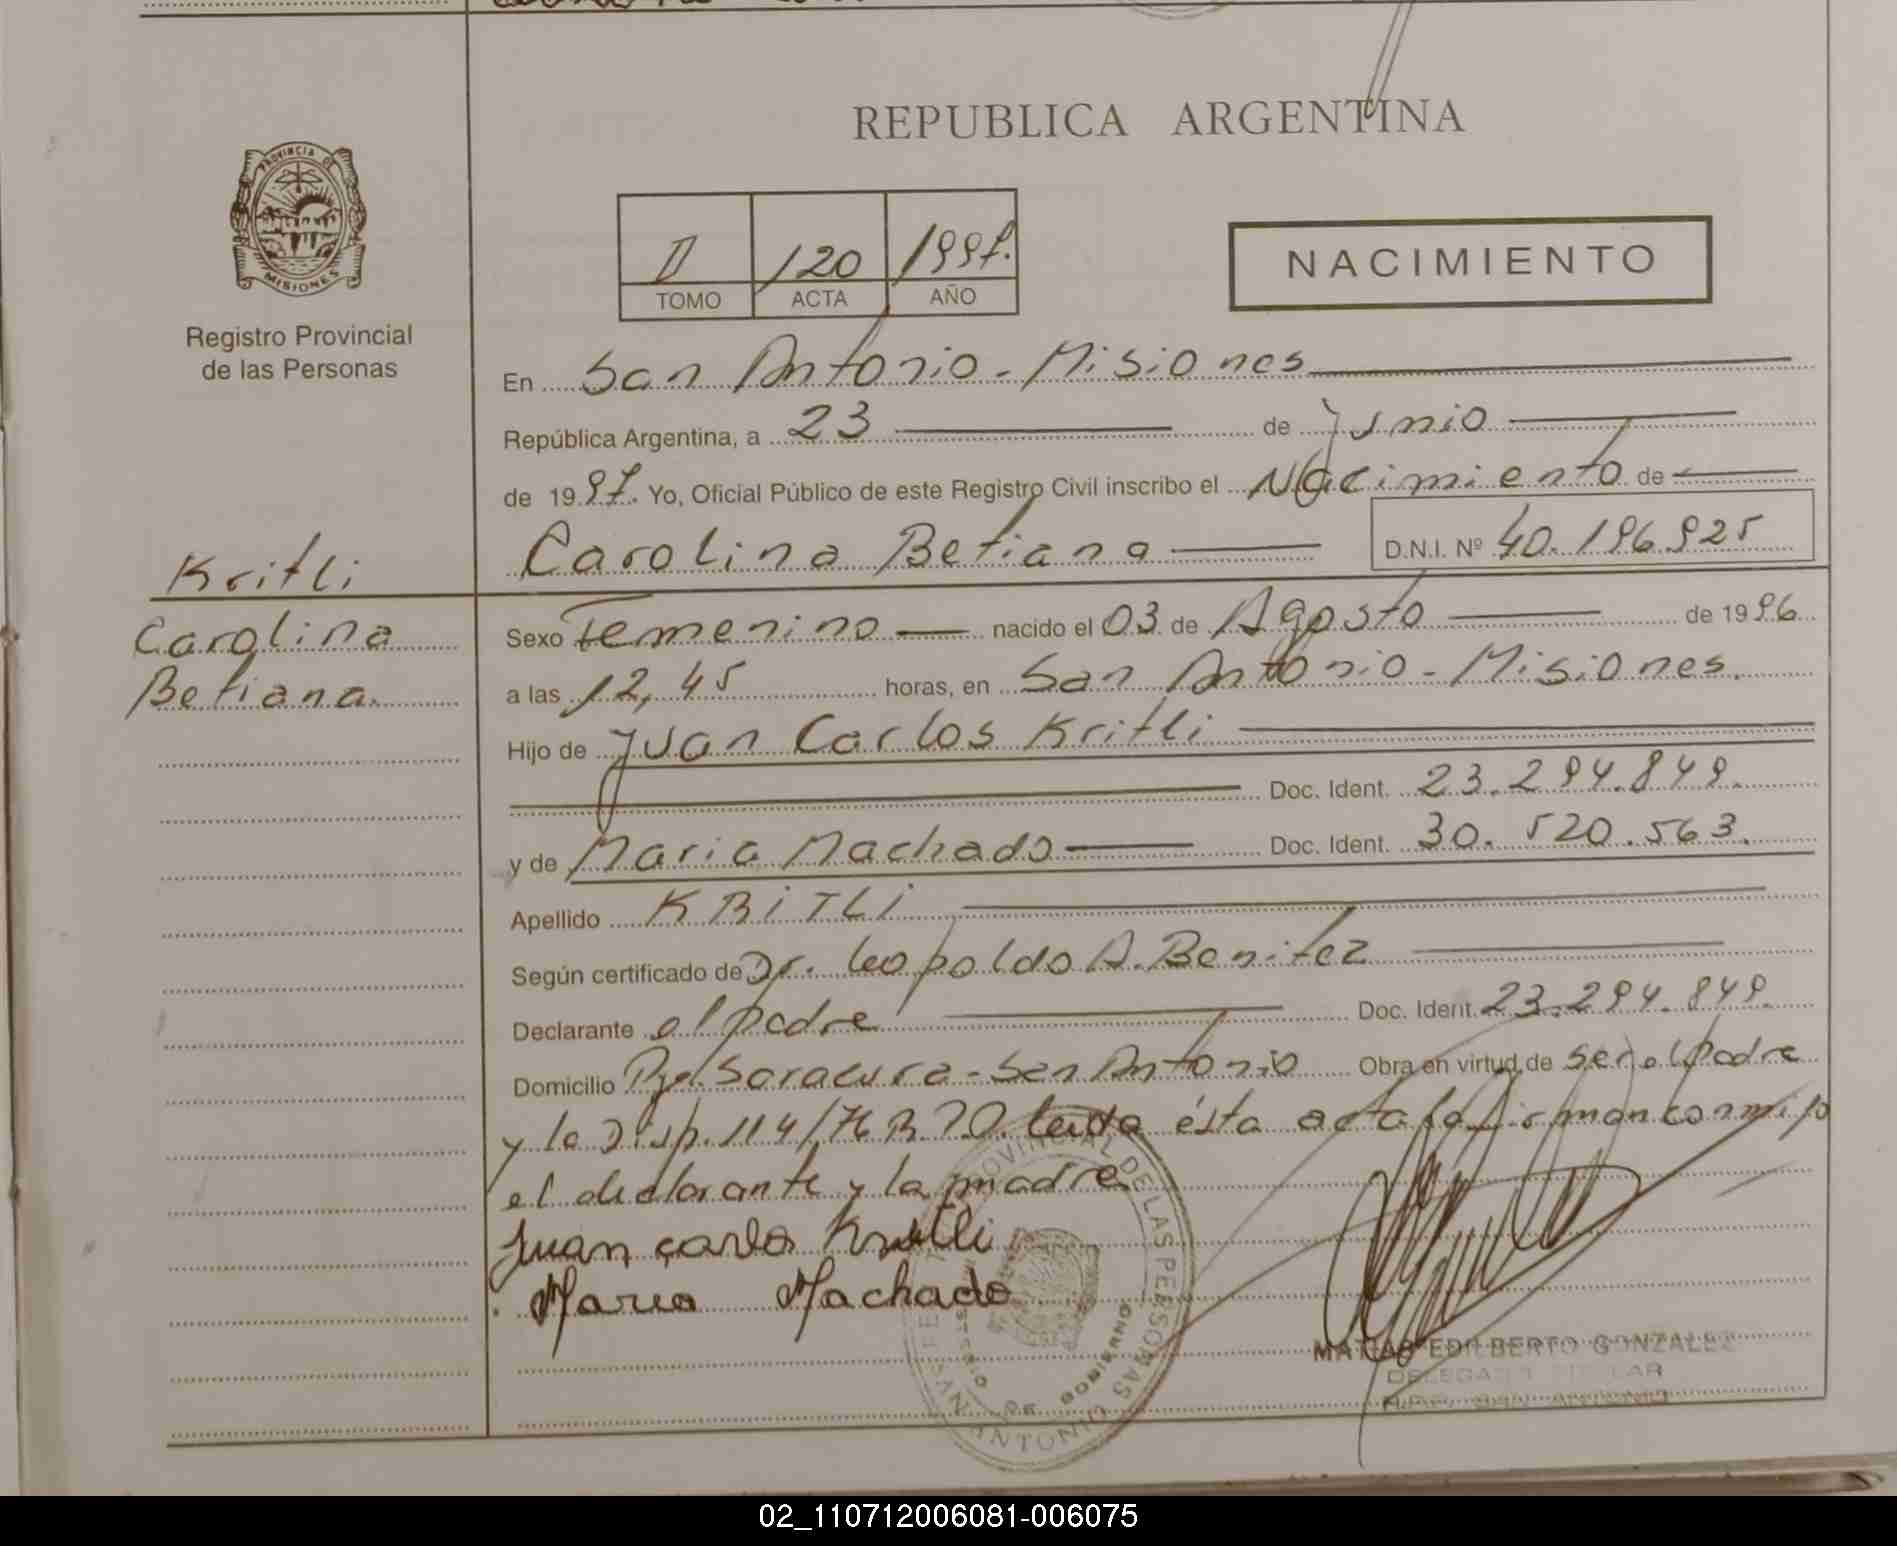 REPUBLICA ARGENTINA
PROVINCIA DE
MISIONES
Registro Provincial
de las Personas
II 120 1997.
TOMO ACTA AÑO
NACIMIENTO
En San Antonio - Misiones
República Argentina, a 23 de Junio
de 1997. Yo, Oficial Público de este Registro Civil inscribo el Nacimiento de
Carolina Betiana D.N.I. Nº 40.196.925
Kritli
Carolina
Betiana.
Sexo Femenino nacido el 03 de Agosto de 1996
a las 12,45 horas, en San Antonio - Misiones.
Hijo de Juan Carlos Kritli
Doc. Ident. 23.294.849.
y de Maria Machado Doc. Ident. 30.520.563.
Apellido KRiTLi
Según certificado de Dr. Leopoldo A. Benitez
Declarante el padre Doc. Ident. 23.294.849.
Domicilio Pje. Saracura - San Antonio Obra en virtud de ser el padre
y la Disp. 114/76 R.P.P. Leida ésta acta la firman conmigo
el declarante y la madre
Juan carlos Kritli
Maria Machado
PROVINCIAL DE LAS PERSONAS
DE GOBIERNO
SAN ANTONIO
MATIAS EDILBERTO GONZALEZ
DELEGADO TITULAR
R.P.P. SAN ANTONIO
02_110712006081-006075